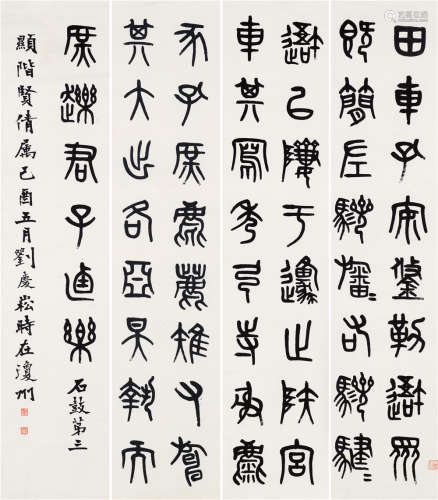 田車孔安鋚勒
既簡左驂旛〻右驂騝〻
以隮于邍止陕宮
車其寫秀弓寺射麋
豕孔庶麀鹿雉又旆
其大出各亞昊執而
庶趩君子卣樂 石鼓第三
顯階賢倩属己酉五月劉慶崧時在瓊州